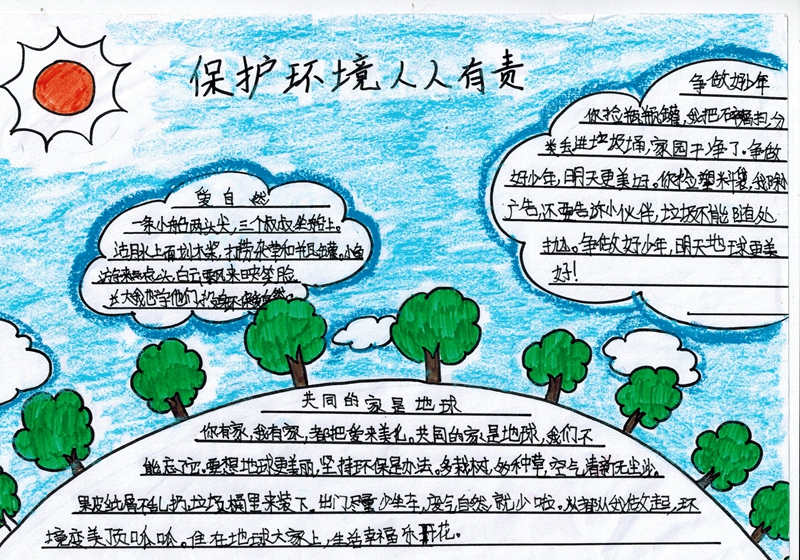 保护环境人人有责
争做好少年
你捡瓶瓶罐,我把不中留扫,分
类丢进垃圾桶,家园干净了。争做
好少年,明天更美好。你捡塑料袋,我除
广告,还要告诉小伙伴,垃圾不能随处
扔。争做好少年,明天地球更美
好!
爱自然
一条小船两头尖,三个叔叔坐船上。
沽月水上面划木桨,打捞杂草和瓶罐,小鱼
点头,白云飘来映笑脸
长大我也学他们,
共同的家是地球
你有家,我有家,都把爱来美化。共同的家是地球,我们不
能忘记。要想地球更美丽,坚持环保是办法。多栽树,多种草,空气清新无尘沙。
果皮纸屑不乱扔,垃圾桶里来装下。出门尽量少坐车,废气自然就少啦。从都从我做起,环
境变美顶呱呱。住在地球大家上,生活幸福乐开花。